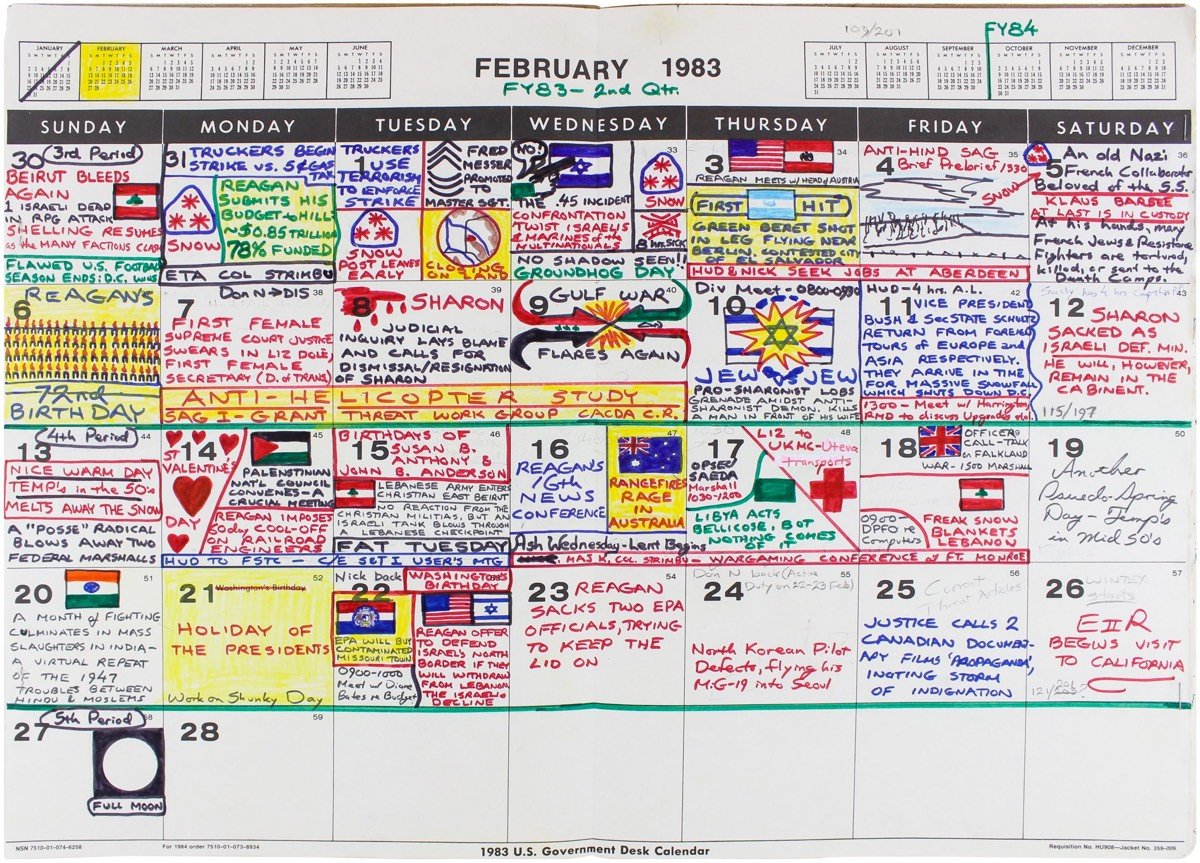 109/201
FY84
JANUARY FEBRUARY MARCH APRIL MAY JUNE
FEBRUARY 1983
FY83 - 2nd Qtr.
JULY AUGUST SEPTEMBER OCTOBER NOVEMBER DECEMBER
SUNDAY MONDAY TUESDAY WEDNESDAY THURSDAY FRIDAY SATURDAY
30 3rd Period
BEIRUT BLEEDS
AGAIN
1 ISRAELI DEAD
IN RPG ATTACK
SHELLING RESUMES
as the MANY FACTIONS CLASH
FLAWED U.S. FOOTBALL
SEASON ENDS: D.C. WINS
31 TRUCKERS BEGIN
STRIKE VS. 5¢ GAS
TAX
SNOW
REAGAN
SUBMITS HIS
BUDGET to HILL:
~$0.85 TRILLION
78% FUNDED
ETA COL STRIMBU
TRUCKERS
1 USE
TERRORISM
TO ENFORCE
STRIKE
SNOW
POST LEAVES
EARLY
FRED
MESSER
PROMOTED
TO
MASTER SGT.
CLOSING
ON
NO!
THE .45 INCIDENT
CONFRONTATION
TWIXT ISRAELIS
& MARINES of the
MULTINATIONALS
33
SNOW
8 hrs. SICK
NO SHADOW SEEN!!
GROUNDHOG DAY
3 34
REAGAN MEETS w/ HEAD of AUSTRIA
FIRST HIT
GREEN BERET SHOT
IN LEG FLYING NEAR
BERLIN, CONTESTED CITY
OF EL SALVADOR
HUD & NICK SEEK JOBS AT ABERDEEN
ANTI-HIND SAG 35
4 Brief Prebrief/1330
SNOW
36
5 An old Nazi
French Collaborator
Beloved of the S.S.
KLAUS BARBEE
AT LAST IS IN CUSTODY
At his hands, many
French Jews & Resistance
Fighters are tortured,
killed, or sent to the
Death Camps.
6 REAGAN'S
72nd
BIRTHDAY
7 Don N → DIS 38
FIRST FEMALE
SUPREME COURT JUSTICE
SWEARS IN LIZ DOLE,
FIRST FEMALE
SECRETARY (D. of TRANS)
8 SHARON 39
JUDICIAL
INQUIRY LAYS BLAME
AND CALLS FOR
DISMISSAL/RESIGNATION
OF SHARON
9 GULF WAR 40
FLARES AGAIN
ANTI-HELICOPTER STUDY
SAG I GRANT THREAT WORK GROUP CACDA C.R.
Div Meet - 0800-0930
10
JEW vs JEW
PRO-SHARONIST LOBS
GRENADE AMIDST ANTI-
SHARONIST DEMON. KILLS
A MAN IN FRONT OF HIS WIFE
HUD - 4 hrs. A.L. 42
11 VICE PRESIDENT
BUSH & SecSTATE SCHULTZ
RETURN FROM FOREIGN
TOURS OF EUROPE and
ASIA RESPECTIVELY.
THEY ARRIVE IN TIME
FOR MASSIVE SNOWFALL
WHICH SHUTS DOWN D.C.
1300 - Meet w/ Harrington
ARMD to discuss Upgrades etc.
43
12 SHARON
SACKED AS
ISRAELI DEF. MIN.
HE WILL, HOWEVER,
REMAIN IN THE
CABINENT.
115/197
13 4th Period 44
NICE WARM DAY
TEMP's in the 50's
MELTS AWAY THE SNOW
A "POSSE" RADICAL
BLOWS AWAY TWO
FEDERAL MARSHALLS
14 45
ST
VALENTINE'S
DAY
PALENSTINIAN
NAT'L COUNCIL
CONVENES - A
CRUCIAL MEETING
REAGAN IMPOSES
60 day COOL-OFF
ON RAILROAD
ENGINEERS
BIRTHDAYS OF
15 SUSAN B.
ANTHONY &
JOHN B. ANDERSON
LEBANESE ARMY ENTERS
CHRISTIAN EAST BEIRUT
NO REACTION FROM THE
CHRISTIAN MILITIAS, BUT AN
ISRAELI TANK BLOWS THROUGH
A LEBANESE CHECKPOINT
FAT TUESDAY
HUD to FSTC - C/E S&T I USER'S MTG
16
REAGAN'S
16th
NEWS
CONFERENCE
47
RANGEFIRES
RAGE
IN
AUSTRALIA
Ash Wednesday - Lent Begins
17 48
OPSEC
SAEDA
Marshall
1030-1200
LIZ to
UKMC - Uteva
Transports
LIBYA ACTS
BELLICOSE, BUT
NOTHING COMES
OF IT
MAS K, COL. STRIMBU - WARGAMING CONFERENCE at FT. MONROE
18 OFFICER
CALL - TALK
on FALKLAND
WAR - 1500 MARSHALL
0900-
DPFO re
Computers
FREAK SNOW
BLANKETS
LEBANON
50
19
Another
Psuedo-Spring
Day - Temp's
in Mid 50's
20 51
A MONTH OF FIGHTING
CULMINATES IN MASS
SLAUGHTERS IN INDIA -
A VIRTUAL REPEAT
OF THE 1947
TROUBLES BETWEEN
HINDU & MOSLEMS
Washington's Birthday 52
21
HOLIDAY OF
THE PRESIDENTS
Work on Shunky Day
Nick back
22
WASHINGTON'S
BIRTHDAY
EPA WILL BUY
CONTAMINATED
MISSOURI TOWN
0900-1000
Meet w/ Diane
Bates re Budget
REAGAN OFFER
TO DEFEND
ISRAEL'S NORTH
BORDER IF THEY
WILL WITHDRAW
FROM LEBANON
THE ISRAELIS
DECLINE
54
23 REAGAN
SACKS TWO EPA
OFFICIALS, TRYING
TO KEEP THE
LID ON
Don N back (Active 55
Duty on 22-23 Feb)
24
North Korean Pilot
Defects, flying his
MiG-19 into Seoul
56
25
Threat Articles
JUSTICE CALLS 2
CANADIAN DOCUMEN-
ARY FILMS 'PROPAGANDA',
INCITING STORM
OF INDIGNATION
57
26 WINTEX
starts
EIIR
BEGINS VISIT
TO CALIFORNIA
5th Period 58
27
FULL MOON
28 59
NSN 7510-01-074-6258
For 1984 order 7510-01-073-8934
1983 U.S. Government Desk Calendar
Requisition No. HU908—Jacket No. 359-006